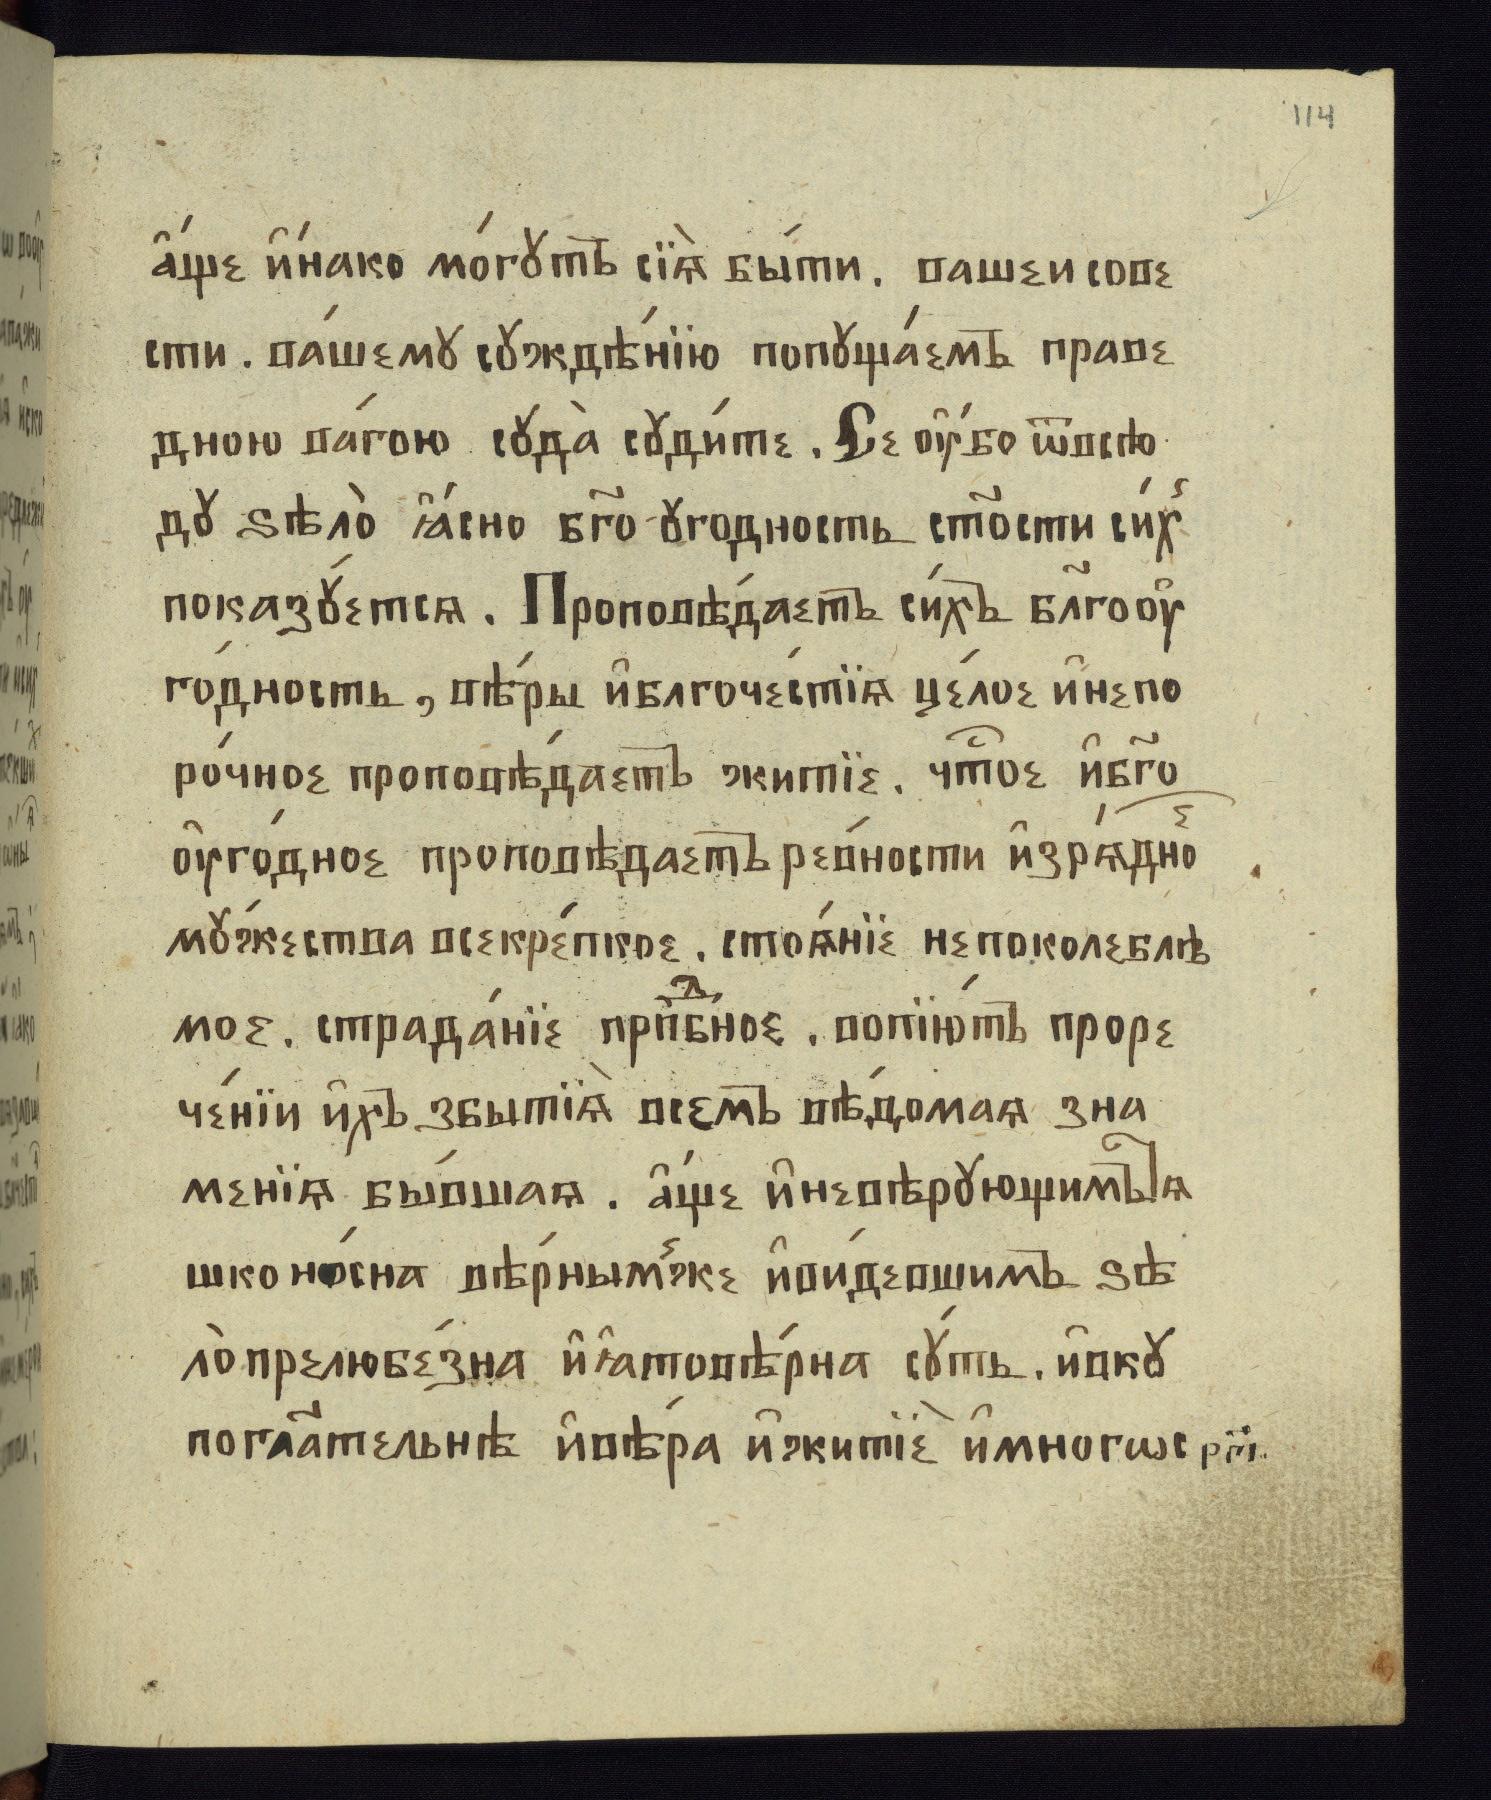 114
а҆́ще и҆́нако мо́гꙋтъ сїѧ̀ бы́ти. вашеи сове
сти. ва́шемꙋ сꙋждѣ́нїю попꙋща́емъ праве
дною ва́гою сꙋда̀ сꙋди́те. Се ᲂу҆́бо ѿвсю
дꙋ ѕѣло̀ ꙗ҆́сно бг҃о ꙋгодность ст҃ости си́х
показꙋ́етсѧ. Проповѣ́даетъ си́хъ бл҃гоᲂу҆
го́дность, вѣ́ры и҆благоче́стїѧ це́лое и҆непо
ро́чное проповѣ́даетъ житїе. чⷭ҇тое и҆бг҃о
ᲂу҆го́дное проповѣдаетъ ре́вности и҆зрѧ́дноⷭ
мꙋ́жества всекре́пкое. стоѧ́нїе непоколеблѣ
мое. страда́нїе прпⷣбное. вопїю́тъ проре
че́нїи и҆хъ збытїѧ̀ всемъ вѣ́домаѧ зна
менїѧ бы́вшаѧ. а҆́ще и҆невѣрꙋющимъ ꙗ
шко но́сна вѣ́рнымже и҆ви́девшимъ ѕѣ
ло̀ прелюбе́зна и҆ꙗ҆товѣ́рна сꙋ́ть. и҆вкꙋ
погл҃ательнѣ и҆вѣ́ра и҆житїѐ и҆многѡс рг҃і.